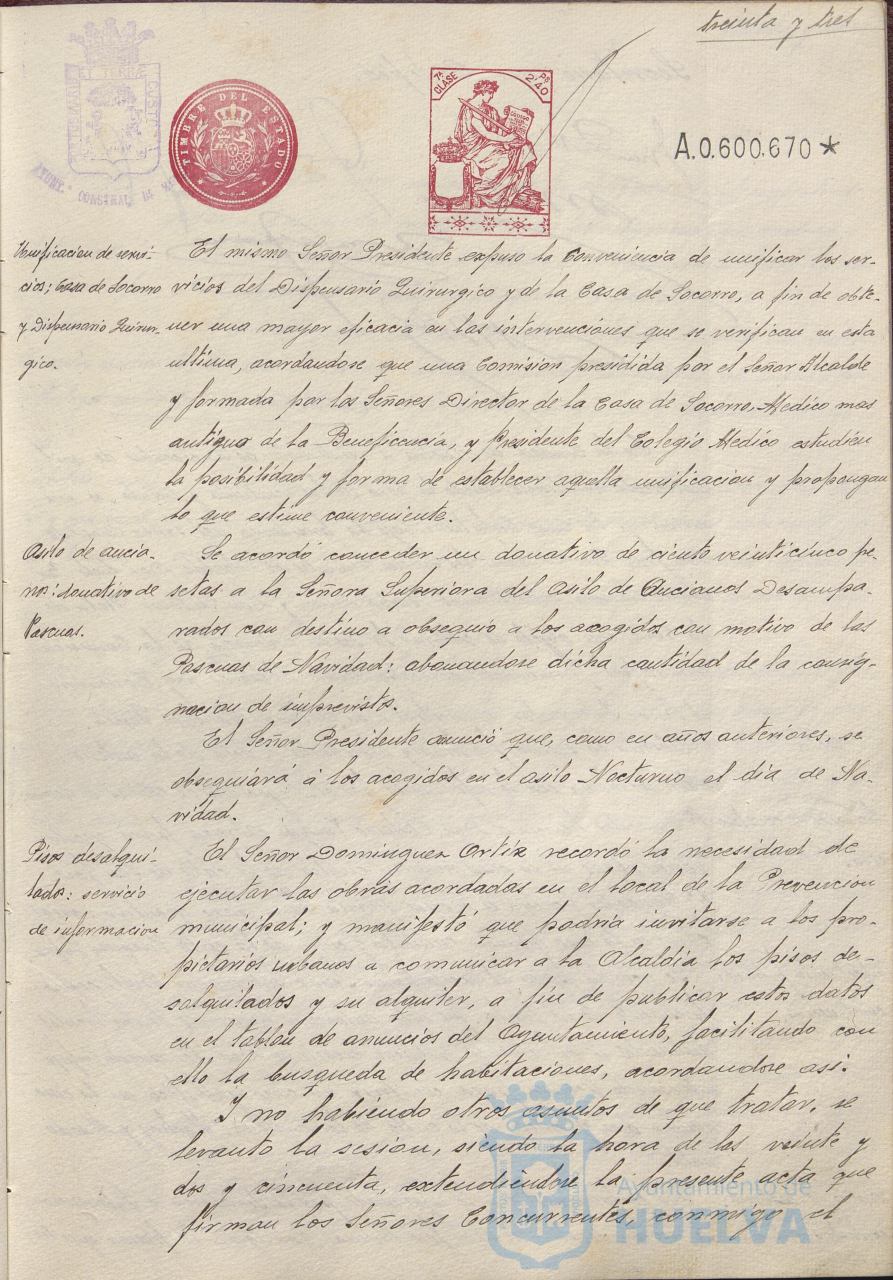 treinta y tres
PORTUS MARIS ET TERRÆ CUSTODIA
AYUNT. CONSTNAL. DE
TIMBRE DEL ESTADO
7ª CLASE
2 Ps 40
A.0.600.670*
Unificacion de servi-
cios; Casa de Socorro
y Dispensario Quirur-
gico.
El mismo Señor Presidente expuso la conveniencia de unificar los ser-
vicios del Dispensario Quirurgico y de la Casa de Socorro, a fin de obte-
ner una mayor eficacia en las intervenciones que se verifican en esta
ultima, acordandose que una Comision presidida por el Señor Alcalde
y formada por los Señores Director de la Casa de Socorro, Medico mas
antiguo de la Beneficencia, y Presidente del Colegio Medico estudien
la posibilidad y forma de establecer aquella unificacion y propongan
lo que estime conveniente.
Asilo de ancia-
nos: donativo de
Pascuas.
Se acordó conceder un donativo de ciento veinticinco pe-
setas a la Señora Superiora del Asilo de Ancianos Desampa-
rados con destino a obsequio a los acogidos con motivo de las
Pascuas de Navidad: abonandose dicha cantidad de la consig-
nacion de imprevistos.
El Señor Presidente anunció que, como en años anteriores, se
obsequiará á los acogidos en el asilo Nocturno el día de Na-
vidad.
Pisos desalqui-
lados: servicio
de informacion
El Señor Dominguez Ortiz recordó la necesidad de
ejecutar las obras acordadas en el local de la Prevencion
municipal; y manifestó que podria invitarse a los pro-
pietarios urbanos a comunicar a la Alcaldía los pisos de-
salquilados y su alquiler, a fin de publicar estos datos
en el tablon de anuncios del Ayuntamiento, facilitando con
ello la busqueda de habitaciones, acordandose asi.
Y no habiendo otros asuntos de que tratar, se
levanto la sesion, siendo la hora de las veinte y
dos y cincuenta, extendiendose la presente acta que
firman los Señores Concurrentes, conmigo el
Ayuntamiento de
HUELVA